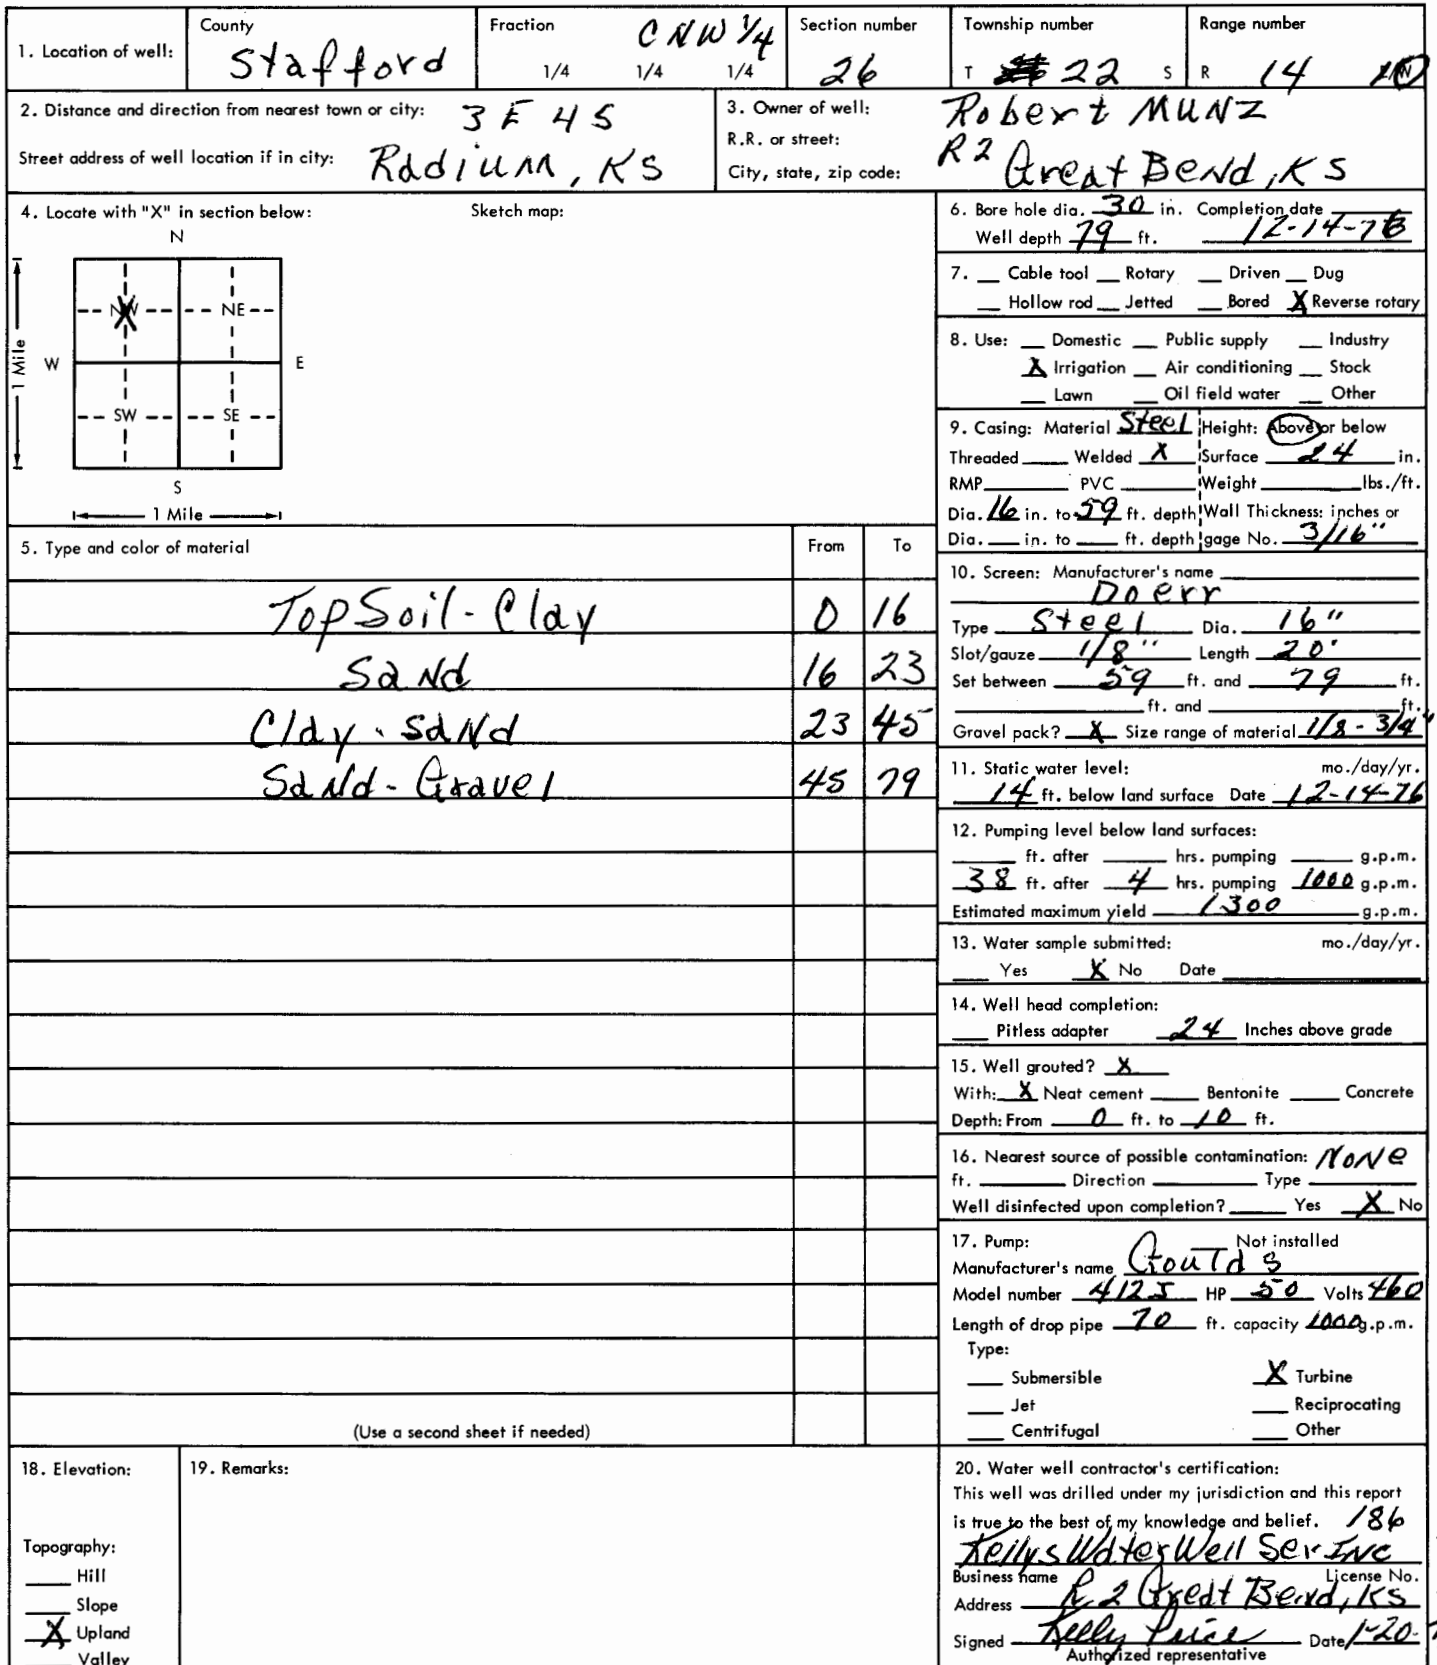 1. Location of well:
County
Stafford
Fraction
C NW 1/4
1/4 1/4 1/4
Section number
26
Township number
T 22 S
Range number
R 14 W
2. Distance and direction from nearest town or city: 3 E 4 S
Street address of well location if in city: Radium, KS
3. Owner of well: Robert MUNZ
R.R. or street: R2
City, state, zip code: Great Bend, KS
4. Locate with "X" in section below:
Sketch map:
N
NW NE
W E
SW SE
S
1 Mile
1 Mile
5. Type and color of material From To
Top Soil - Clay 0 16
Sand 16 23
Clay - Sand 23 45
Sand - Gravel 45 79
(Use a second sheet if needed)
6. Bore hole dia. 30 in. Completion date
Well depth 79 ft. 12-14-76
7. __ Cable tool __ Rotary __ Driven __ Dug
__ Hollow rod __ Jetted __ Bored X Reverse rotary
8. Use: __ Domestic __ Public supply __ Industry
X Irrigation __ Air conditioning __ Stock
__ Lawn __ Oil field water __ Other
9. Casing: Material Steel Height: Above or below
Threaded ____ Welded X Surface 24 in.
RMP ____ PVC ____ Weight ____ lbs./ft.
Dia. 16 in. to 59 ft. depth Wall Thickness: inches or
Dia. __ in. to __ ft. depth gage No. 3/16"
10. Screen: Manufacturer's name
Doerr
Type Steel Dia. 16"
Slot/gauze 1/8" Length 20'
Set between 59 ft. and 79 ft.
____ ft. and ____ ft.
Gravel pack? X Size range of material 1/8 - 3/4"
11. Static water level: mo./day/yr.
14 ft. below land surface Date 12-14-76
12. Pumping level below land surfaces:
____ ft. after ____ hrs. pumping ____ g.p.m.
38 ft. after 4 hrs. pumping 1000 g.p.m.
Estimated maximum yield 1300 g.p.m.
13. Water sample submitted: mo./day/yr.
__ Yes X No Date ____
14. Well head completion:
__ Pitless adapter 24 Inches above grade
15. Well grouted? X
With: X Neat cement ____ Bentonite ____ Concrete
Depth: From 0 ft. to 10 ft.
16. Nearest source of possible contamination: NONE
ft. ____ Direction ____ Type ____
Well disinfected upon completion? ____ Yes X No
17. Pump: __ Not installed
Manufacturer's name Goulds
Model number 412J HP 50 Volts 460
Length of drop pipe 70 ft. capacity 1000 g.p.m.
Type:
__ Submersible X Turbine
__ Jet __ Reciprocating
__ Centrifugal __ Other
18. Elevation:
Topography:
__ Hill
__ Slope
X Upland
__ Valley
19. Remarks:
20. Water well contractor's certification:
This well was drilled under my jurisdiction and this report
is true to the best of my knowledge and belief. 186
Kellys Water Well Ser Inc
Business name License No.
Address R2 Great Bend, KS
Signed Kelly Price Date 1-20-
Authorized representative